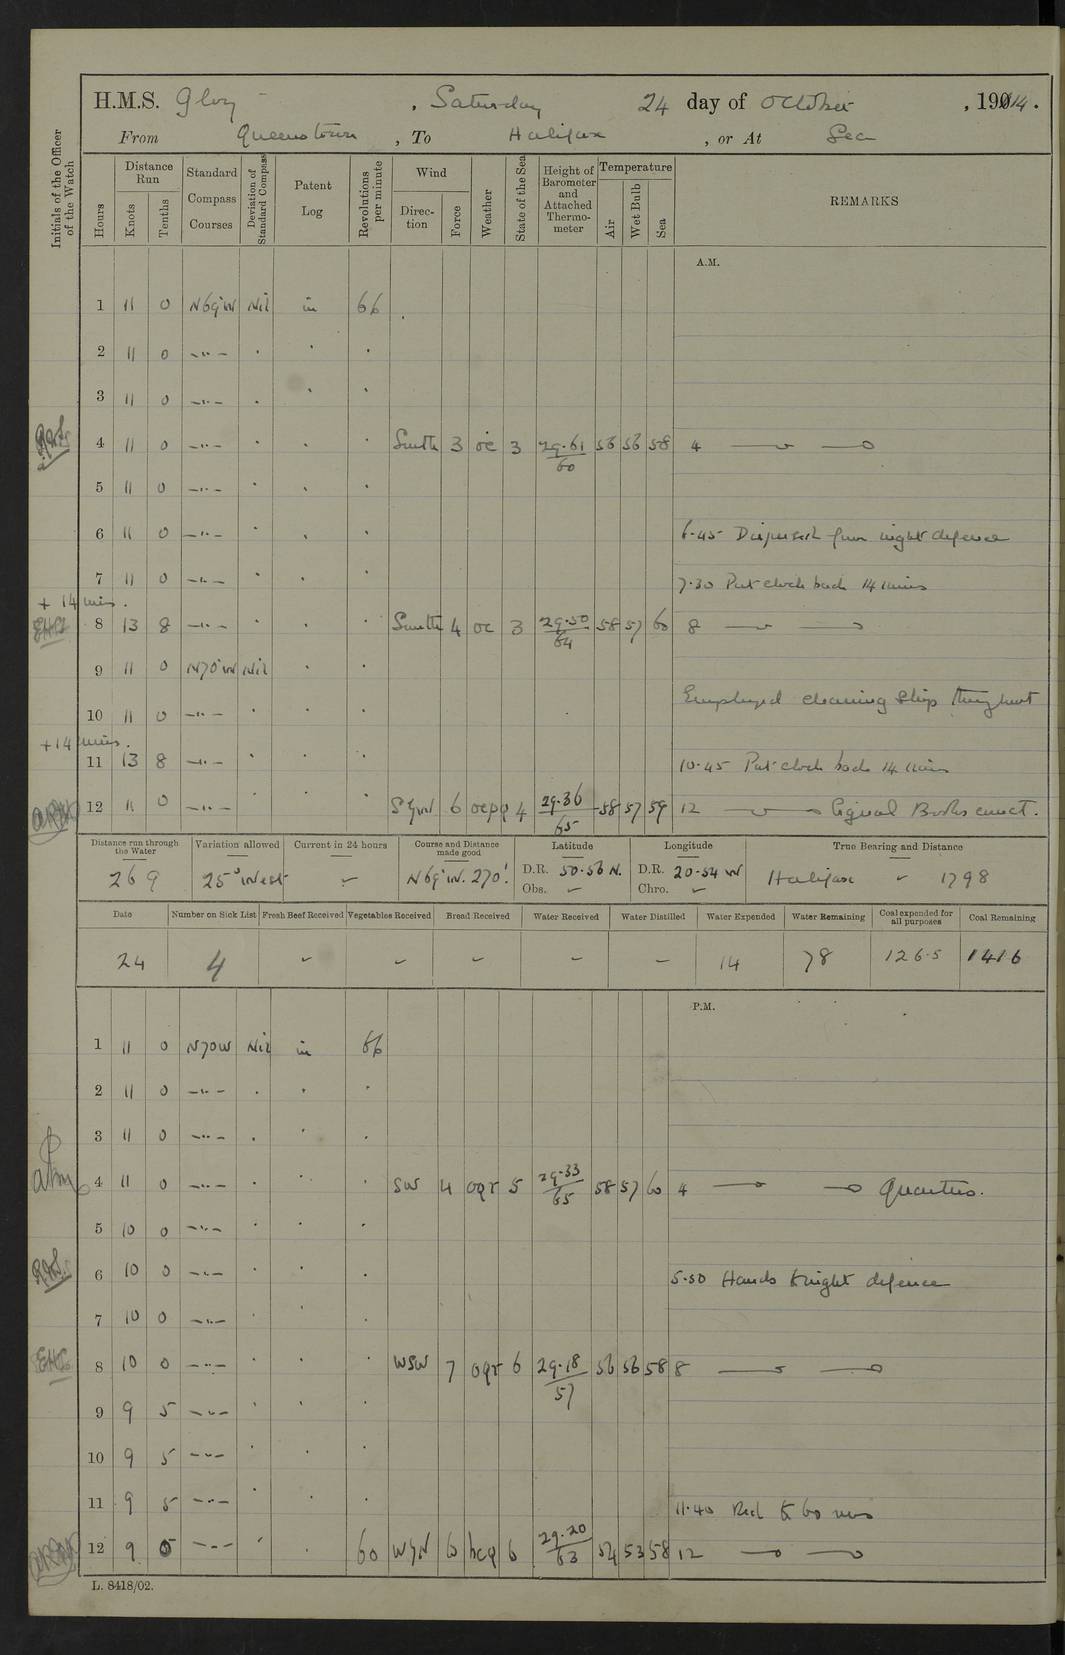 H.M.S. Glory, Saturday 24 day of October, 1914.
From Queenstown, To Halifax, or At Sea
Initials of the Officer of the Watch
Hours
Distance Run
Knots Tenths
Standard Compass Courses
Deviation of Standard Compass
Patent Log
Revolutions per minute
Wind
Direction Force
Weather
State of the Sea
Height of Barometer and Attached Thermometer
Temperature
Air Wet Bulb Sea
REMARKS
A.M.
1 11 0 N69°W Nil in 66
2 11 0 -"-
3 11 0 -"-
4 11 0 -"- South 3 oc 3 29.61/60 56 56 58 4
5 11 0 -"-
6 11 0 -"- 6.45 Dispersed from night defence
7 11 0 -"- 7.30 Put clock back 14 mins
+ 14 mins.
8 13 8 -"- South 4 oc 3 29.50/64 58 57 60 8
9 11 0 N70°W Nil
Employed cleaning ship throughout
10 11 0 -"-
+14 mins.
11 13 8 -"- 10.45 Put clock back 14 mins
12 11 0 -"- SyW 6 ocpq 4 29.36/65 58 57 59 12 Signal Books correct.
Distance run through the Water
Variation allowed
Current in 24 hours
Course and Distance made good
Latitude
Longitude
True Bearing and Distance
269 25° West N69°W. 270'. D.R. 50.56 N. D.R. 20.54 W Halifax 1798
Obs. Chro.
Date Number on Sick List Fresh Beef Received Vegetables Received Bread Received Water Received Water Distilled Water Expended Water Remaining Coal expended for all purposes Coal Remaining
24 4 - - - - - 14 78 126.5 1416
P.M.
1 11 0 N70W Nil in 66
2 11 0 -"-
3 11 0 -"-
4 11 0 -"- SW 4 oqr 5 29.33/65 58 57 60 4 Quarters.
5 10 0 -"-
6 10 0 -"- 5.50 Hands to night defence
7 10 0 -"-
8 10 0 -"- WSW 7 oqr 6 29.18/57 56 56 58 8
9 9 5 -"-
10 9 5 -"-
11 9 5 -"- 11.40 Red to 60 revs
12 9 5 -"- 60 WyN 6 bcq 6 29.20/63 54 53 58 12
L. 8418/02.